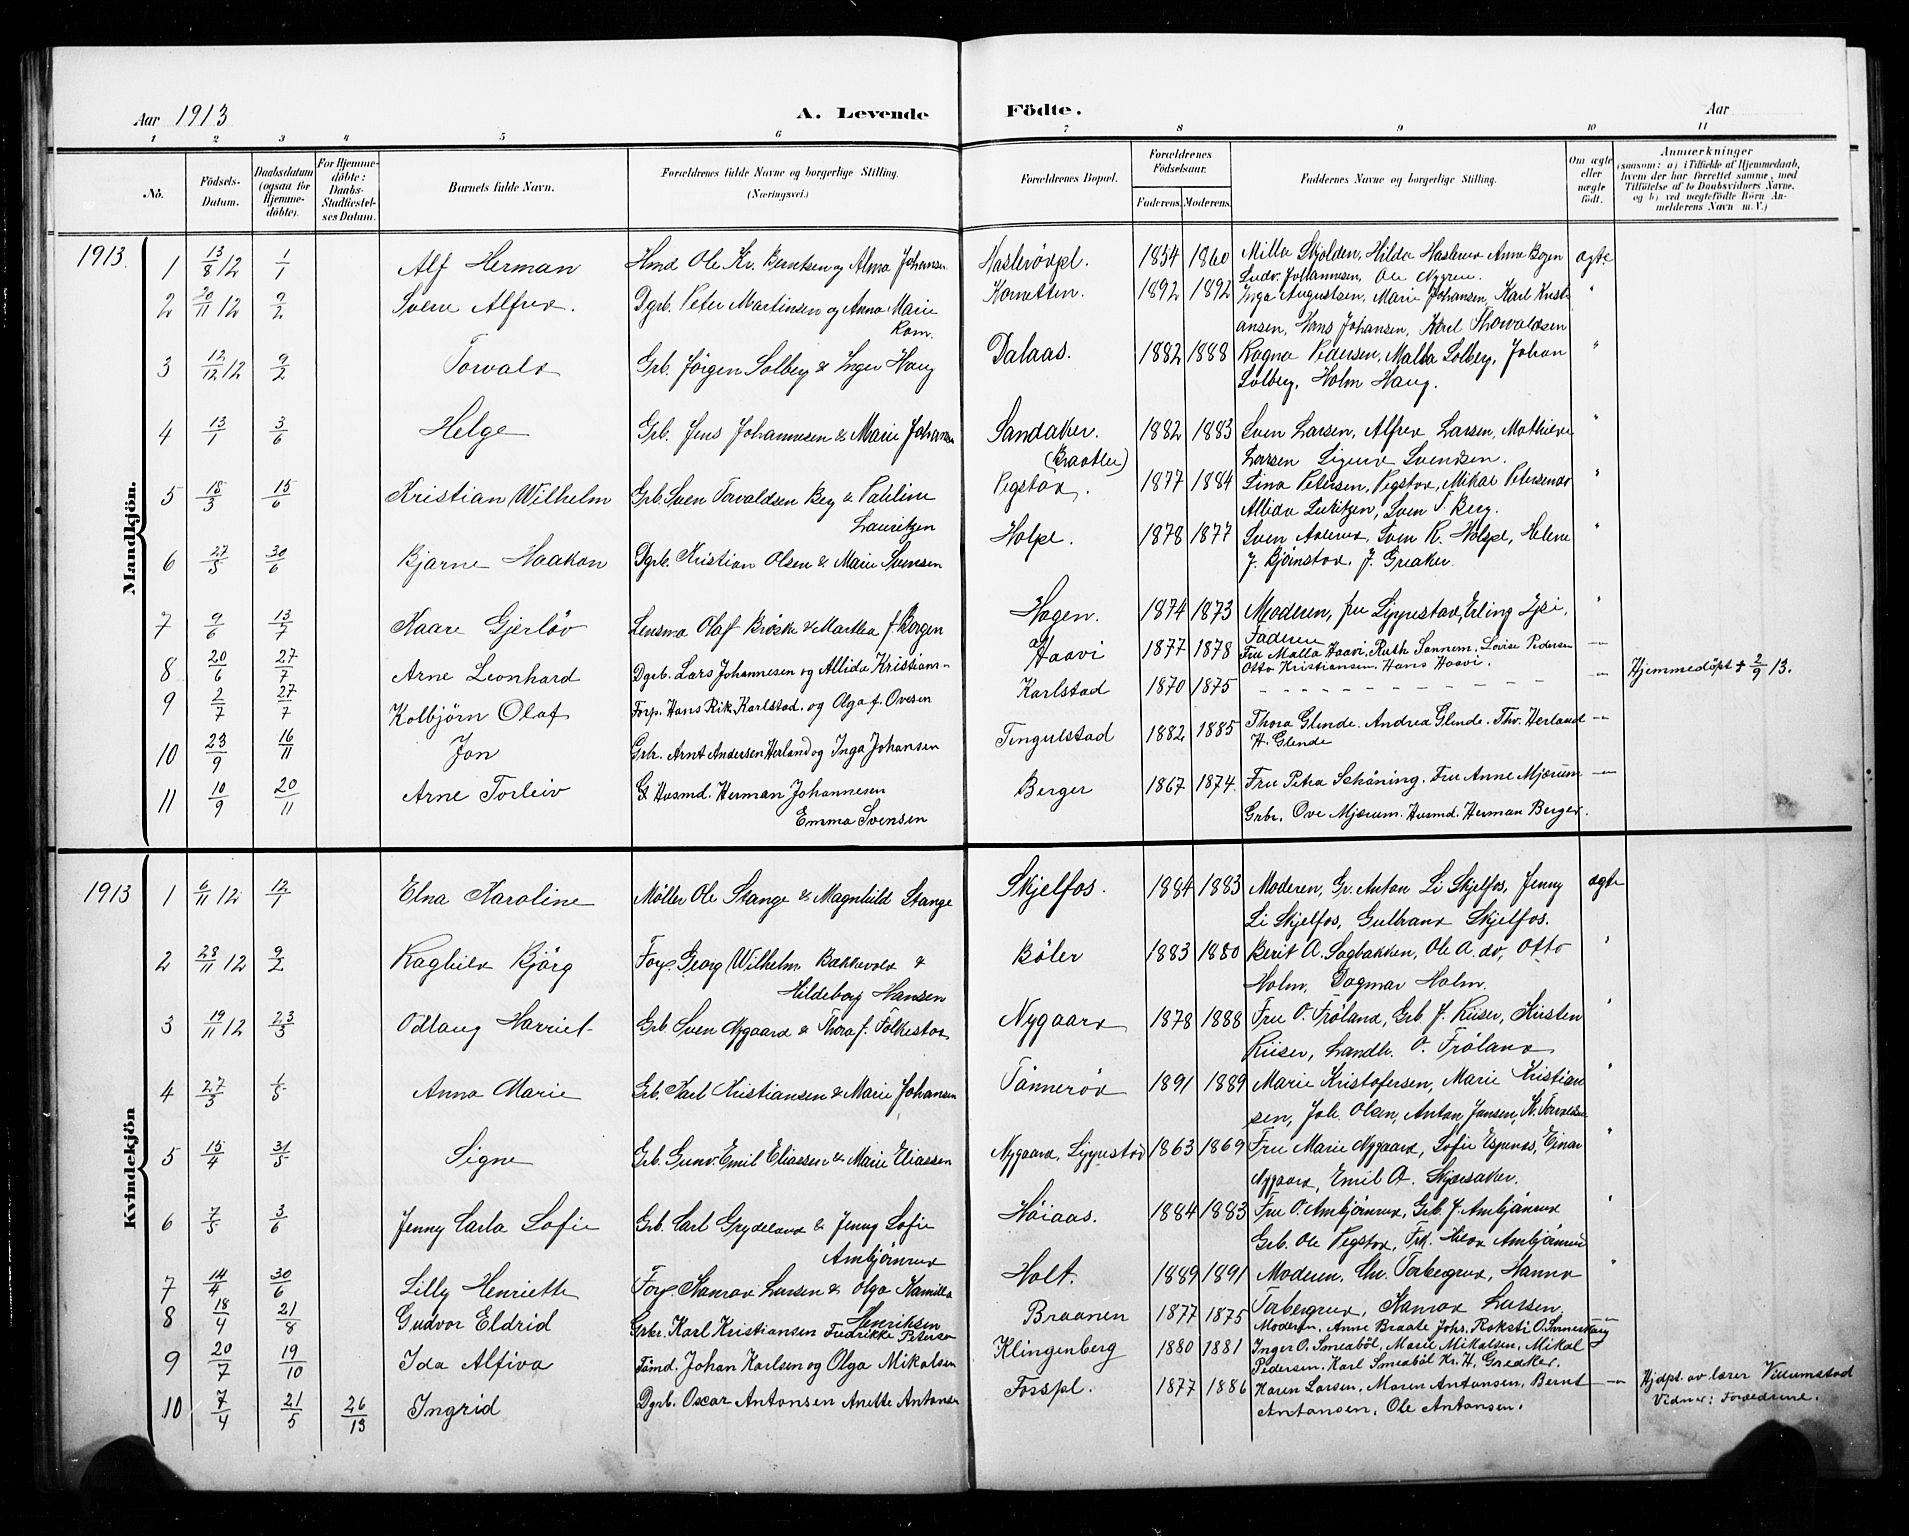 Aar 1913
A. Levende
Födte.
Aar
1 2 3 4 5 6 7 8 9 10 11
No.
Födsels-
Datum.
Daabsdatum
(ogsaa for
Hjemme-
döbte).
For Hjemme-
döbte:
Daabs-
Stadfæstel-
ses Datum.
Barnets fulde Navn.
Forældrenes fulde Navne og borgerlige Stilling.
(Næringsvei.)
Forældrenes Bopæl.
Forældrenes
Födselsaar.
Faderens. Moderens.
Faddernes Navne og borgerlige Stilling.
Om ægte
eller
uægte
födt.
Anmærkninger
(saasom: a) i Tilfælde af Hjemmedaab,
hvem der har forrettet samme, med
Tilföielse af to Daabsvidners Navne,
og b) ved uægtefödte Börn An-
melderens Navn m. V.)
Mandkjön.
1913. 1 13/8 12 1/1 Alf Herman Hmd Ole Kr. Berntsen og Alma Johansen Haslerövpl. 1854 1860 Milla Skjolden, Hilda Haslerud Anne Bogen ægte
Ludv. Johannesen, Ole Nygren.
2 20/11 12 9/2 Svein Alfred. Dgrb. Peter Martinsen og Anna Marie Kornetten. 1892 1892 Inga Augustsen, Marie Johansen, Karl Kristi "
Rom. ansen, Hans Johansen, Karl Thorvaldsen
3 12/12 12 9/2 Torvald Grb. Jörgen Solberg & Inger Haug Dalaas. 1882 1888 Ragna Pedersen, Malla Solberg, Johan "
Solberg, Holm Haug.
4 13/1 3/6 Helge Grb. Jens Johannesen & Marie Johansen Sandaker. 1882 1883 Sven Larsen, Alfred Larsen, Mathilde "
(Braatler) Larsen Sigurd Svendsen.
5 18/3 15/6 Kristian Wilhelm Grb Sven Torvaldsen Berg & Pauline Pegstad. 1877 1884 Lina Petersen, Pegstad, Mikal Petersen do "
Lauritzen Allida Lauritzen, Sven T. Berg.
6 27/5 30/6 Bjarne Haakon Dgrb. Kristian Olsen & Marie Svensen Holpe. 1878 1877 Sven Aslerud, Sven K. Holpe, Helene "
J. Björnstad. J. Greaker.
7 9/6 13/7 Kaare Gjerlöv Lensmd Olaf Bröske & Martha f. Borgen Hagen. 1874 1873 Moderen, fru Lippestad, Erling Igsi, "
Faderen
8 20/6 27/7 Arne Leonhard Dgrb. Lars Johannesen og Allida Kristians- Haavi 1877 1878 Fru Malla Haavi, Ruth Sannem. Lovise Pedersen —
Otto Kristiansen. Hans Haavi.
9 2/7 27/7 Kolbjörn Olaf Forp. Hans Rik. Karlstad. og Olga f. Ovesen Karlstad 1870 1875 – – – – – – – – – – — Hjemmedöpt † 2/9 13.
10 23/9 16/11 Jon Grbr. Arnt Andersen Herland og Inga Johansen Tingulstad 1882 1885 Thora Glende. Andrea Glende. Thv. Herland —
H. Glende
11 10/9 20/11 Arne Torleiv G. Husmd. Herman Johannesen Berger 1867 1874. Fru Petra Schåning. Fru Anne Mjærum —
Emma Svensen Grbr. Ove Mjærum. Husmd. Herman Berger.
Kvindekjön
1913 1 6/11 12 12/1 Elna Karoline Möller Ole Stange & Magnhild Stange Skjelfos. 1884 1883 Moderen, Gr. Anton Li Skjelfos, Jenny ægte
Li Skjelfos, Gulbrand Skjelfos.
2 28/11 12 9/2 Raghild Björg Forp. Georg Wilhelm Bakkevold & Böler 1883 1880 Berit A. Sagbakken, Ole A. do, Otto "
Hildeborg Hansen Holm, Dagmar Holm.
3 19/11 12 23/3 Odlaug Harriet Grb. Sven Nygaard & Thora f. Folkestad Nygaard 1878 1888 Fru O. Fröland, Grb. J. Riiser, Kristen "
Riiser, Landh. O. Fröland
4 27/3 1/5 Anna Marie Grb. Karl Kristiansen & Marie Johansen Tönneröd 1891 1889 Marie Kristofersen, Marie Kristian "
sen, Joh. Olsen, Anton Jansen, K. Torvaldsen
5 15/4 31/5 Signe Grb. Gunv. Emil Eliassen & Marie Eliassen Nygaard, Lippestad 1863 1869 Fru Marie Nygaard, Sofie Espenes, Einar "
Nygaard, Emil A. Skjærsaker.
6 7/5 3/6 Jenny Carla Sofie Grb. Carl Grydeland & Jenny Sofie Höiaas. 1884 1883 Fru O. Ambjörnrud, Grb. J. Ambjörnrud "
Ambjörnrud Grb. Ole Pegstad, Frk. Hilda Ambjörnrud
7 14/4 30/6 Lilly Henriette Forp Konrad Larsen & Olga Kamilla Holt. 1889 1891 Moderen, Chr. Torbergrud, Hanna "
Henriksen Torbergrud, Konrad Larsen.
8 18/4 21/8 Gudvor Eldrid Grbr. Karl Kristiansen Fredrikke Petersen Braanen 1877 1875 Moderen, Anne Braate Johs. Roksti O. Sannes Haug —
9 20/7 19/10 Ida Alfiva Tömd. Johan Karlsen og Olga Mikalsen Klingenberg 1880 1881 Inger O. Smeaböl, Marie Mikalsen, Mikal
Pedersen. Karl Smeaböl Kr. H. Greaker.
10 7/4 21/5 26/13 Ingrid Dgrb. Oscar Antonsen Anette Antonsen Forsspl. 1877 1886 Karen Larsen, Maren Antonsen, Bernt — Hjdpt. av lærer Villumstad
Antonsen, Ole Antonsen. Vidner: Forældrene.